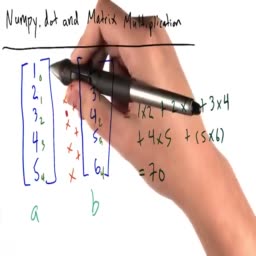 Numpy.dot and Matrix Multiplication
1₀
2₁ 3
3₂ 4₂
4₃ 5₃
5₄ 6₄
= 1x2 + + 3x4
+ 4x5 + (5x6)
= 70
a b